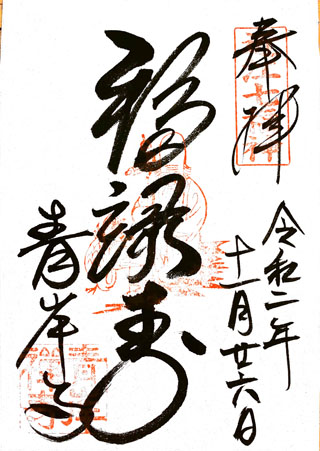 奉拝
令和二年
十一月廿六日
福禄寿
青岸寺